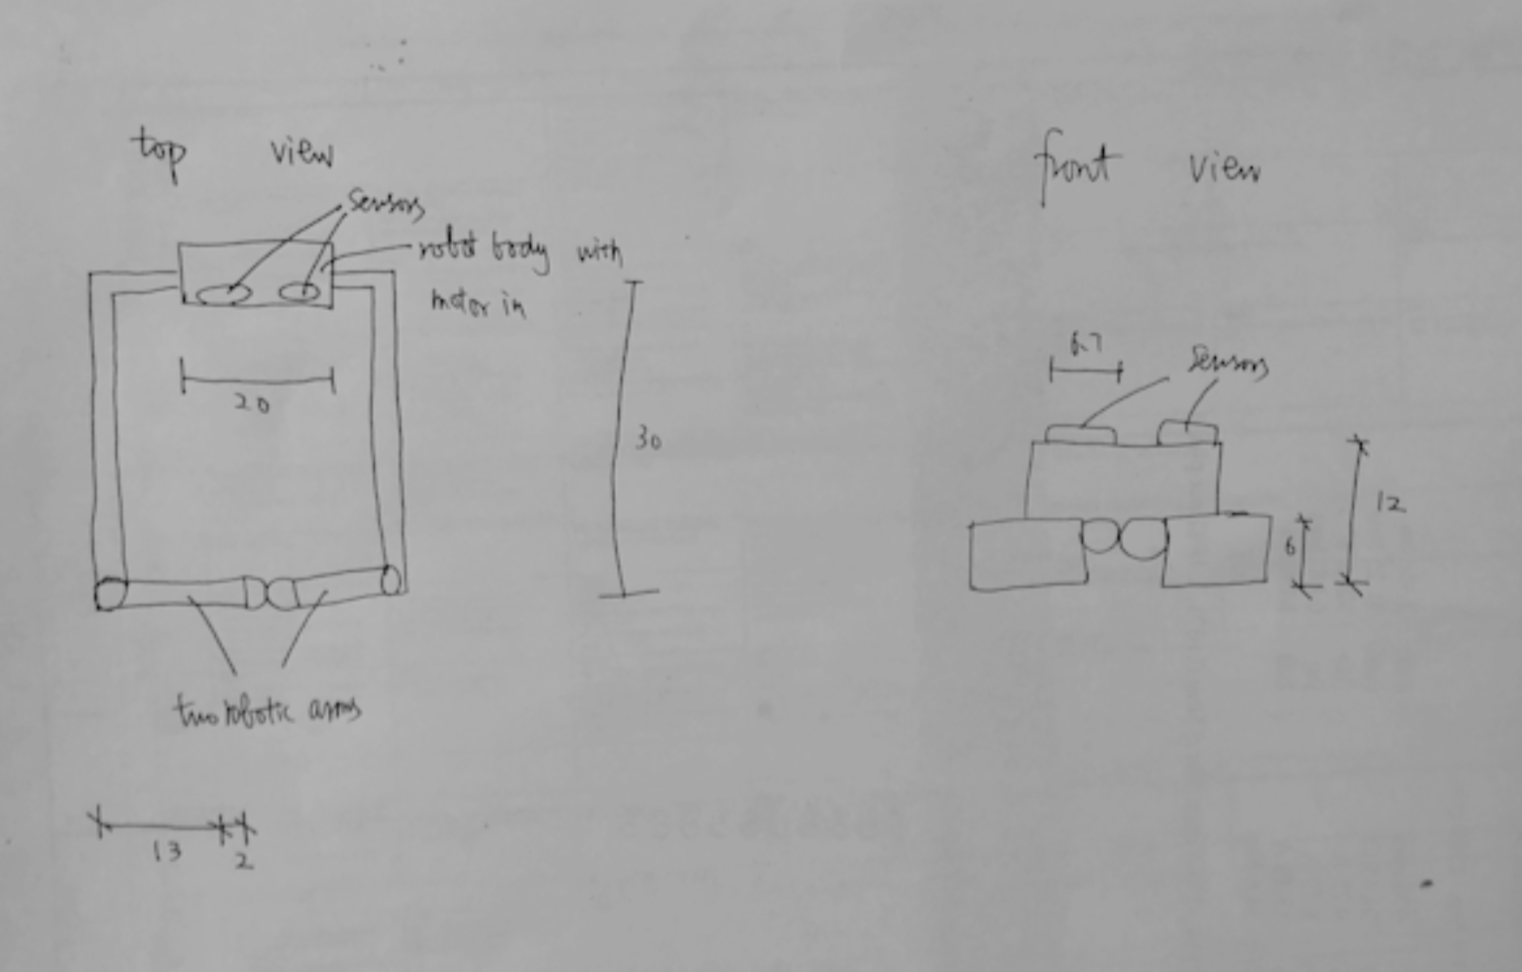 top view
sensors
robot body with
motor in
20
30
two robotic arms
13
2
front view
6.7
sensors
12
6